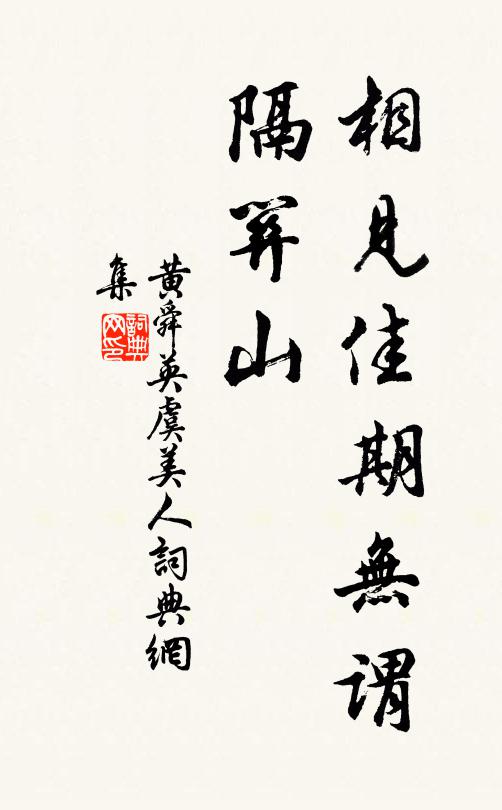 相見佳期無謂
隔關山
黄舜英虞美人詞典網
集
詞典
网印